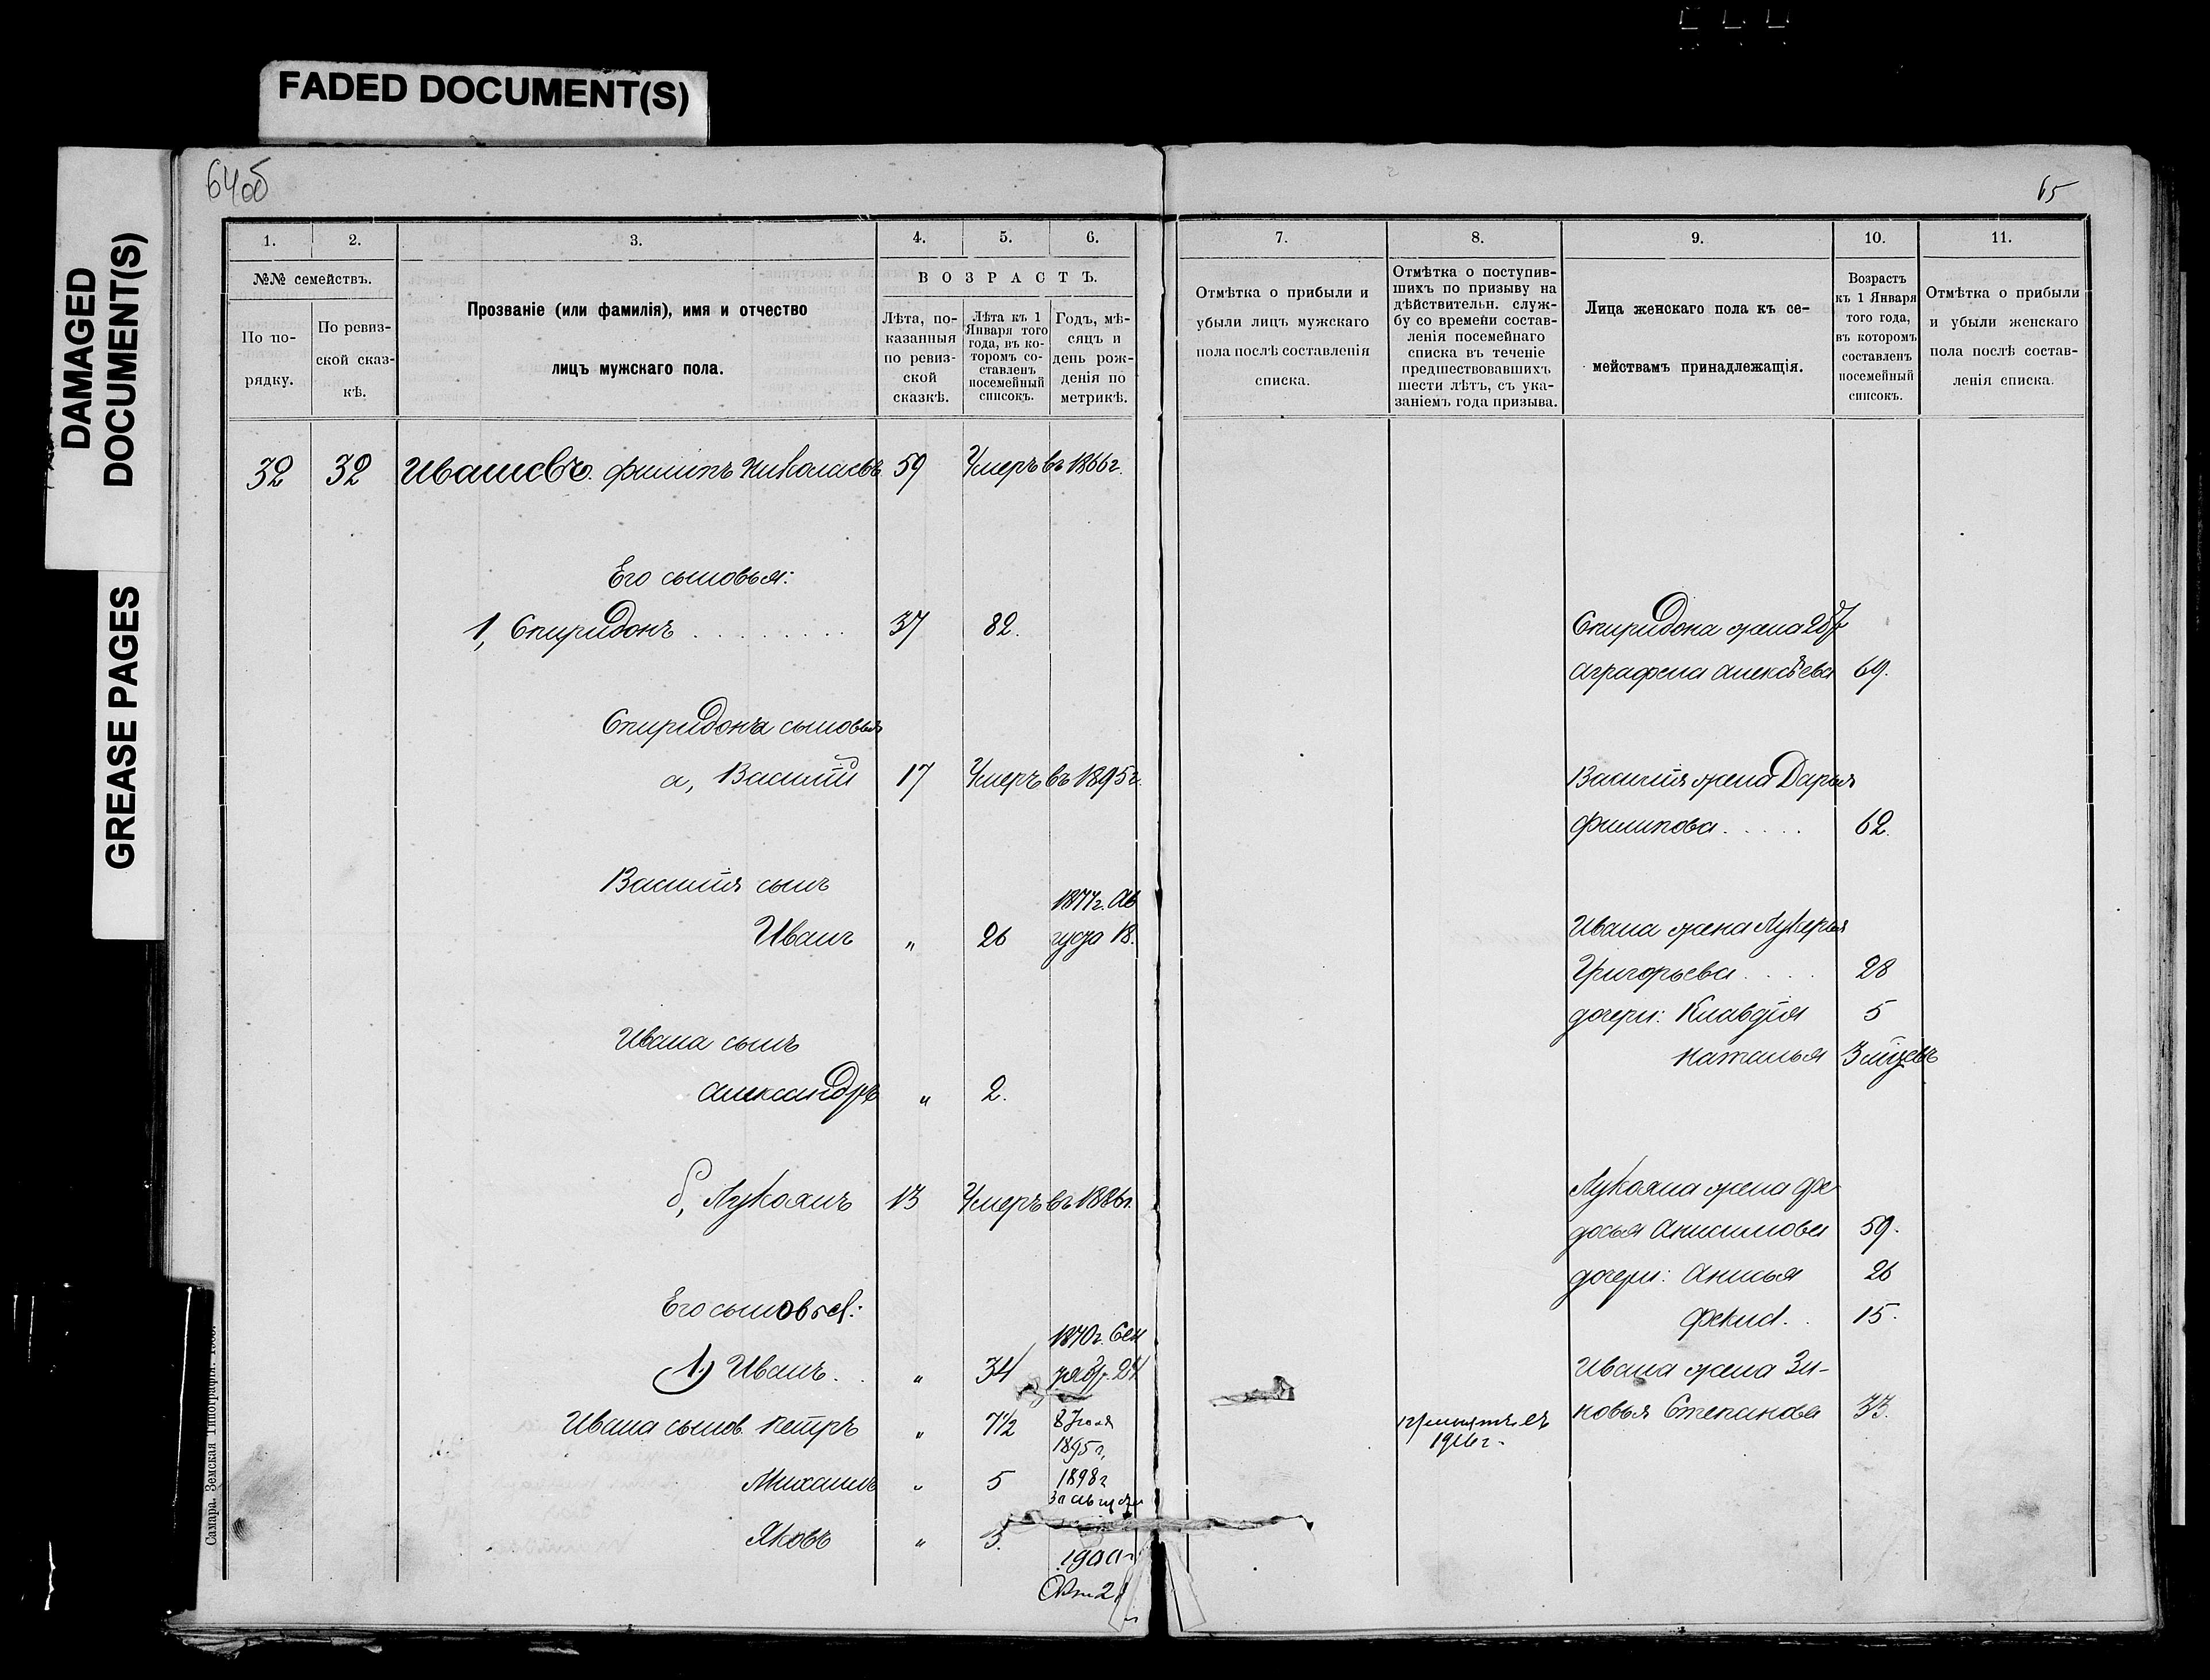 FADED DOCUMENT(S)
DAMAGED
DOCUMENT(S)
GREASE PAGES
64об
1. 2. 3. 4. 5. 6.
№№ семействъ.
По по-
рядку.
По ревиз-
ской сказ-
кѣ.
Прозваніе (или фамилія), имя и отчество
лицъ мужскаго пола.
ВОЗРАСТЪ.
Лѣта, по-
казанныя
по ревиз-
ской
сказкѣ.
Лѣта къ 1
Января того
года, въ ко-
торомъ со-
ставленъ
посемейный
списокъ.
Годъ, мѣ-
сяцъ и
день рож-
денія по
метрикѣ.
32 32 Ивашевъ. Филипъ Николаевъ 59 Умеръ въ 1866 г.
Его сыновья:
1, Спиридонъ . . . . . . . . 37 82.
Спиридона сыновья
а, Василій 17 Умеръ въ 1895 г.
Василія сынъ
1877 г. Ав
Иванъ " 26 густа 18.
Ивана сынъ
Александръ " 2.
б, Лукоянъ 13 Умеръ въ 1886 г.
Его сыновья:
1870 г. Сен
1) Иванъ. . " 34 тяб. 24
Ивана сынов. Петръ " 7½ 8 Іюля
1895 г.
Михаилъ " 5 1898 г
Яковъ " 3. 1900 г
Окт 21
Самара. Земская Типографія.
65
7. 8. 9. 10. 11.
Отмѣтка о прибыли и
убыли лицъ мужскаго
пола послѣ составленія
списка.
Отмѣтка о поступив-
шихъ по призыву на
дѣйствительн. служ-
бу со времени состав-
ленія посемейнаго
списка въ теченіе
предшествовавшихъ
шести лѣтъ, съ ука-
заніемъ года призыва.
Лица женскаго пола къ се-
мействамъ принадлежащія.
Возрастъ
къ 1 Января
того года,
въ которомъ
составленъ
посемейный
списокъ.
Отмѣтка о прибыли
и убыли женскаго
пола послѣ состав-
ленія списка.
Спиридона жена 2 бр
Аграфена Алексѣева 69.
Василія жена Дарья
Филипова . . . . . 62.
Ивана жена Лукерья
Григорьева . . . . 28
дочери: Клавдія 5
Наталья 3 мѣсяцъ
Лукояна жена Фе
досья Анисимова 59.
дочери: Анисья 26
Фекла. . 15.
Ивана жена Зи-
новья Степанова 33.
принятъ въ
1916 г.